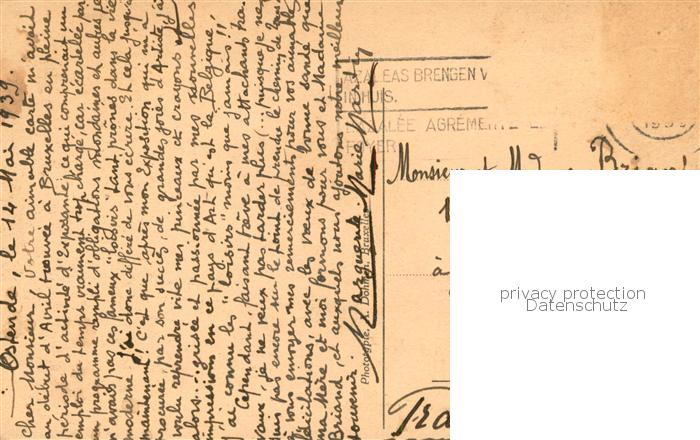 Ostende, le 14 Mai 1939.
Cher Monsieur, Votre aimable carte m'avait
trouvée à Bruxelles en pleine
au début d'Avril
période d'activité d'Exposante, ce qui comprenait un
emploi du temps vraiment trop chargé, car écartelée par
un programme rempli d'obligations mondaines et autres, je
n'avais pas ces fameux "loisirs" tant prônés dans la vie
moderne. J'ai donc différé de vous écrire. Et cela jusqu'à
maintenant! C'est que, après mon Exposition qui m'a
procuré, par son succès, de grandes joies d'Artiste, j'ai
voulu reprendre vite mes pinceaux et crayons et
alors... grisée et passionnée par mes nouvelles
impressions en ce pays d'Art qu'est la Belgique,
j'ai comme les "loisirs" moins que jamais!!
Cependant, faisant trêve à mes attachants tra-
vaux, je ne veux pas tarder plus (... puisque je ne
suis pas encore sur le point de prendre le chemin de
à vous envoyer mes remerciements pour vos aimables
félicitations, avec les vœux de bonne santé que
ma Mère et moi formons pour vous et Madame
Briand, et auxquels nous ajoutons notre meilleur
souvenir.
Marguerite Marie
Photographie Dohmen, Bruxelles
AZALEAS BRENGEN V
HUIS.
ALÉE AGRÉMENTE
FOYER
Monsieur et M
à
Fra
privacy protection
Datenschutz